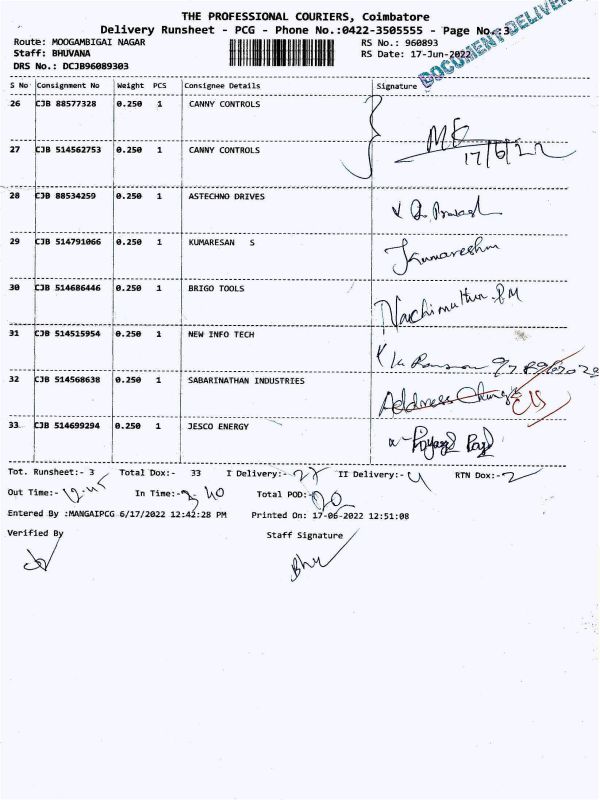 THE PROFESSIONAL COURIERS, Coimbatore
Delivery Runsheet - PCG - Phone No.:0422-3505555 - Page No.:3
DOCUMENT DELIVER
Route: MOOGAMBIGAI NAGAR RS No.: 960893
Staff: BHUVANA RS Date: 17-Jun-2022
DRS No.: DCJB96089303
S No Consignment No Weight PCS Consignee Details Signature
26 CJB 88577328 0.250 1 CANNY CONTROLS
27 CJB 514562753 0.250 1 CANNY CONTROLS 17/6/22
28 CJB 88534259 0.250 1 ASTECHNO DRIVES
29 CJB 514791066 0.250 1 KUMARESAN S Kumareshm
30 CJB 514686446 0.250 1 BRIGO TOOLS Nachimuthu. P.M
31 CJB 514515954 0.250 1 NEW INFO TECH
32 CJB 514568638 0.250 1 SABARINATHAN INDUSTRIES Address Change
33 CJB 514699294 0.250 1 JESCO ENERGY
Tot. Runsheet:- 3 Total Dox:- 33 I Delivery:- 27 II Delivery:- 4 RTN Dox:- 2
Out Time:- 12.45 In Time:- 3.40 Total POD:-
Entered By :MANGAIPCG 6/17/2022 12:42:28 PM Printed On: 17-06-2022 12:51:08
Verified By Staff Signature
Bhu